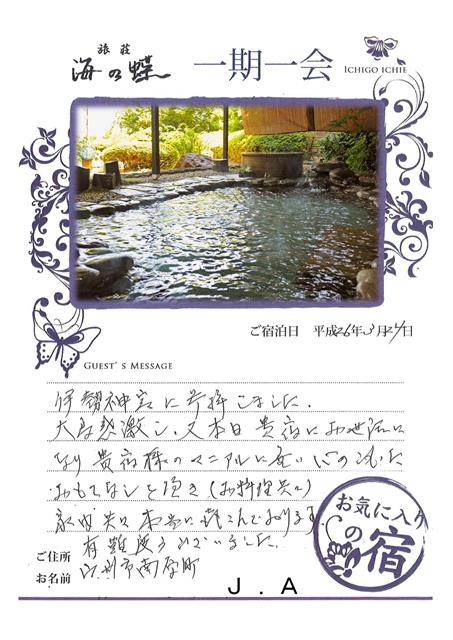 旅荘
海の蝶
一期一会
ICHIGO ICHIE
ご宿泊日 平成26年3月24日
GUEST'S MESSAGE
伊勢神宮に参拝しました。
大変感激し、又本日貴宿にお世話に
なり貴宿様のマニアルに無い心の
おもてなしを頂き(お料理共に)
共に本当に喜こんで居ります。
有難度うございました。
お気に入り
の
宿
ご住所 市南
お名前 J . A